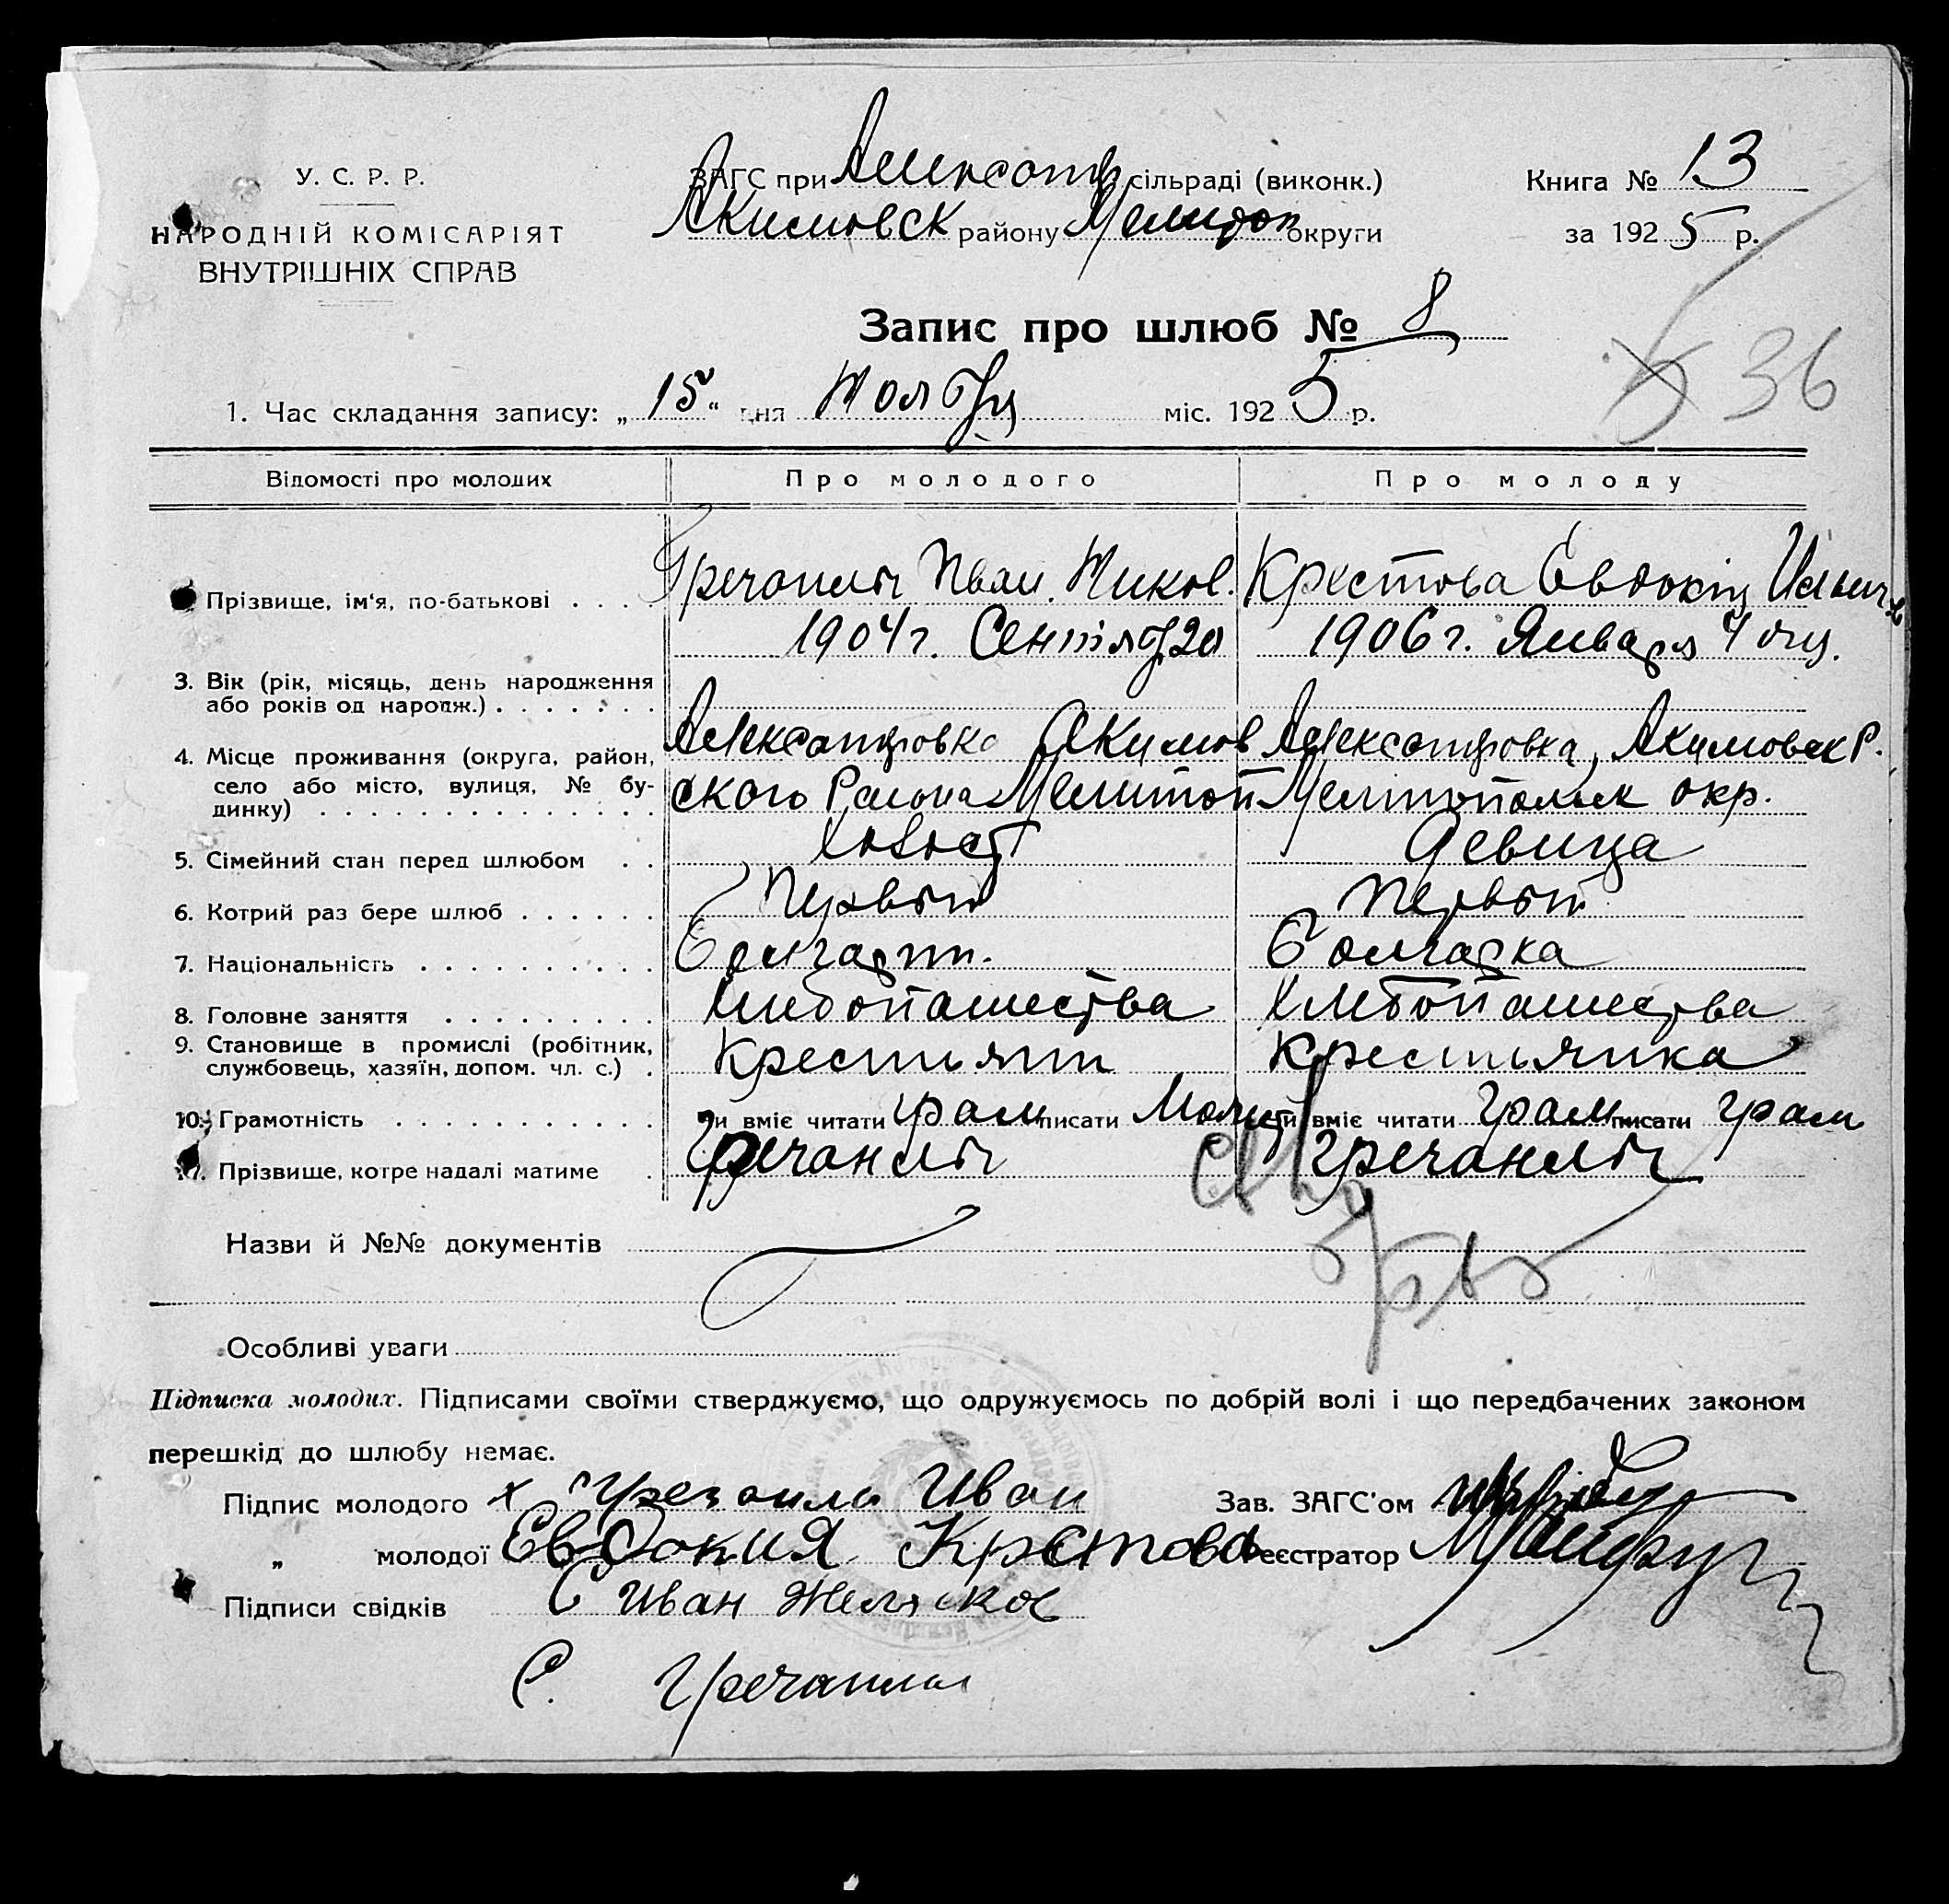 У. С. Р. Р.
НАРОДНІЙ КОМІСАРІЯТ
ВНУТРІШНІХ СПРАВ
ЗАГС при Александр сільраді (виконк.)
Акимовск району Мелитоп округи
Книга № 13
за 1925 р.
Запис про шлюб № 8
36
1. Час складання запису: „15“ дня Ноября міс. 1925 р.
Відомості про молодих Про молодого Про молоду
Прізвище, ім'я, по-батькові . . . . Иван. Никол. Крестова Евдокия
1904 г. Сентября 20 1906 г. Января 4 дня.
3. Вік (рік, місяць, день народження
або років од народж.) . . . . . . .
4. Місце проживання (округа, район,
село або місто, вулиця, № бу-
динку) . . . . . . . . . . . . . .
Александровка Акимов Александровка, Акимовск Р.
ского Района Мелитоп Мелитопольск окр.
5. Сімейний стан перед шлюбом . . Холост Девица
6. Котрий раз бере шлюб . . . . . . Первый Первый
7. Національність . . . . . . . . . . Болгарин. Болгарка
8. Головне заняття . . . . . . . . . Хлебопашества Хлебопашества
9. Становище в промислі (робітник,
службовець, хазяїн, допом. чл. с.) .
Крестьянин Крестьянка
10. Грамотність . . . . . . . . . . . чи вміє читати грам писати чи вміє читати грам писати грам
Прізвище, котре надалі матиме . Гречаный Гречаный
Назви й №№ документів
Особливі уваги
Підписка молодих. Підписами своїми стверджуємо, що одружуємось по добрій волі і що передбачених законом
перешкід до шлюбу немає.
Підпис молодого х Иван Зав. ЗАГС'ом
„ молодої Евдокия Крэстова Реєстратор
Підписи свідків С Иван Желясков
С.